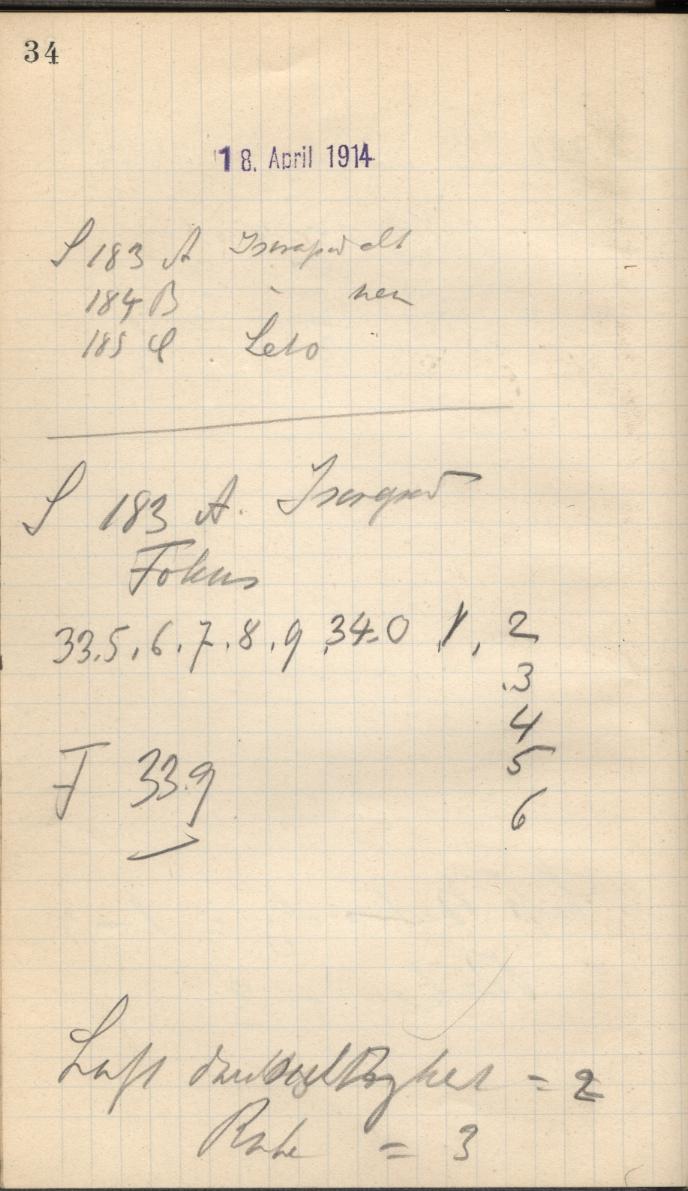 34
18. April 1914
S 183 A Isurapid alt
184 B " neu
185 C Leto
S 183 A. Isorapid
Fokus
33.5, 6, 7, 8, 9, 34.0 1, 2
.3
4
5
6
F 33.9
Luft durchsichtigkeit = 2
Ruhe = 3